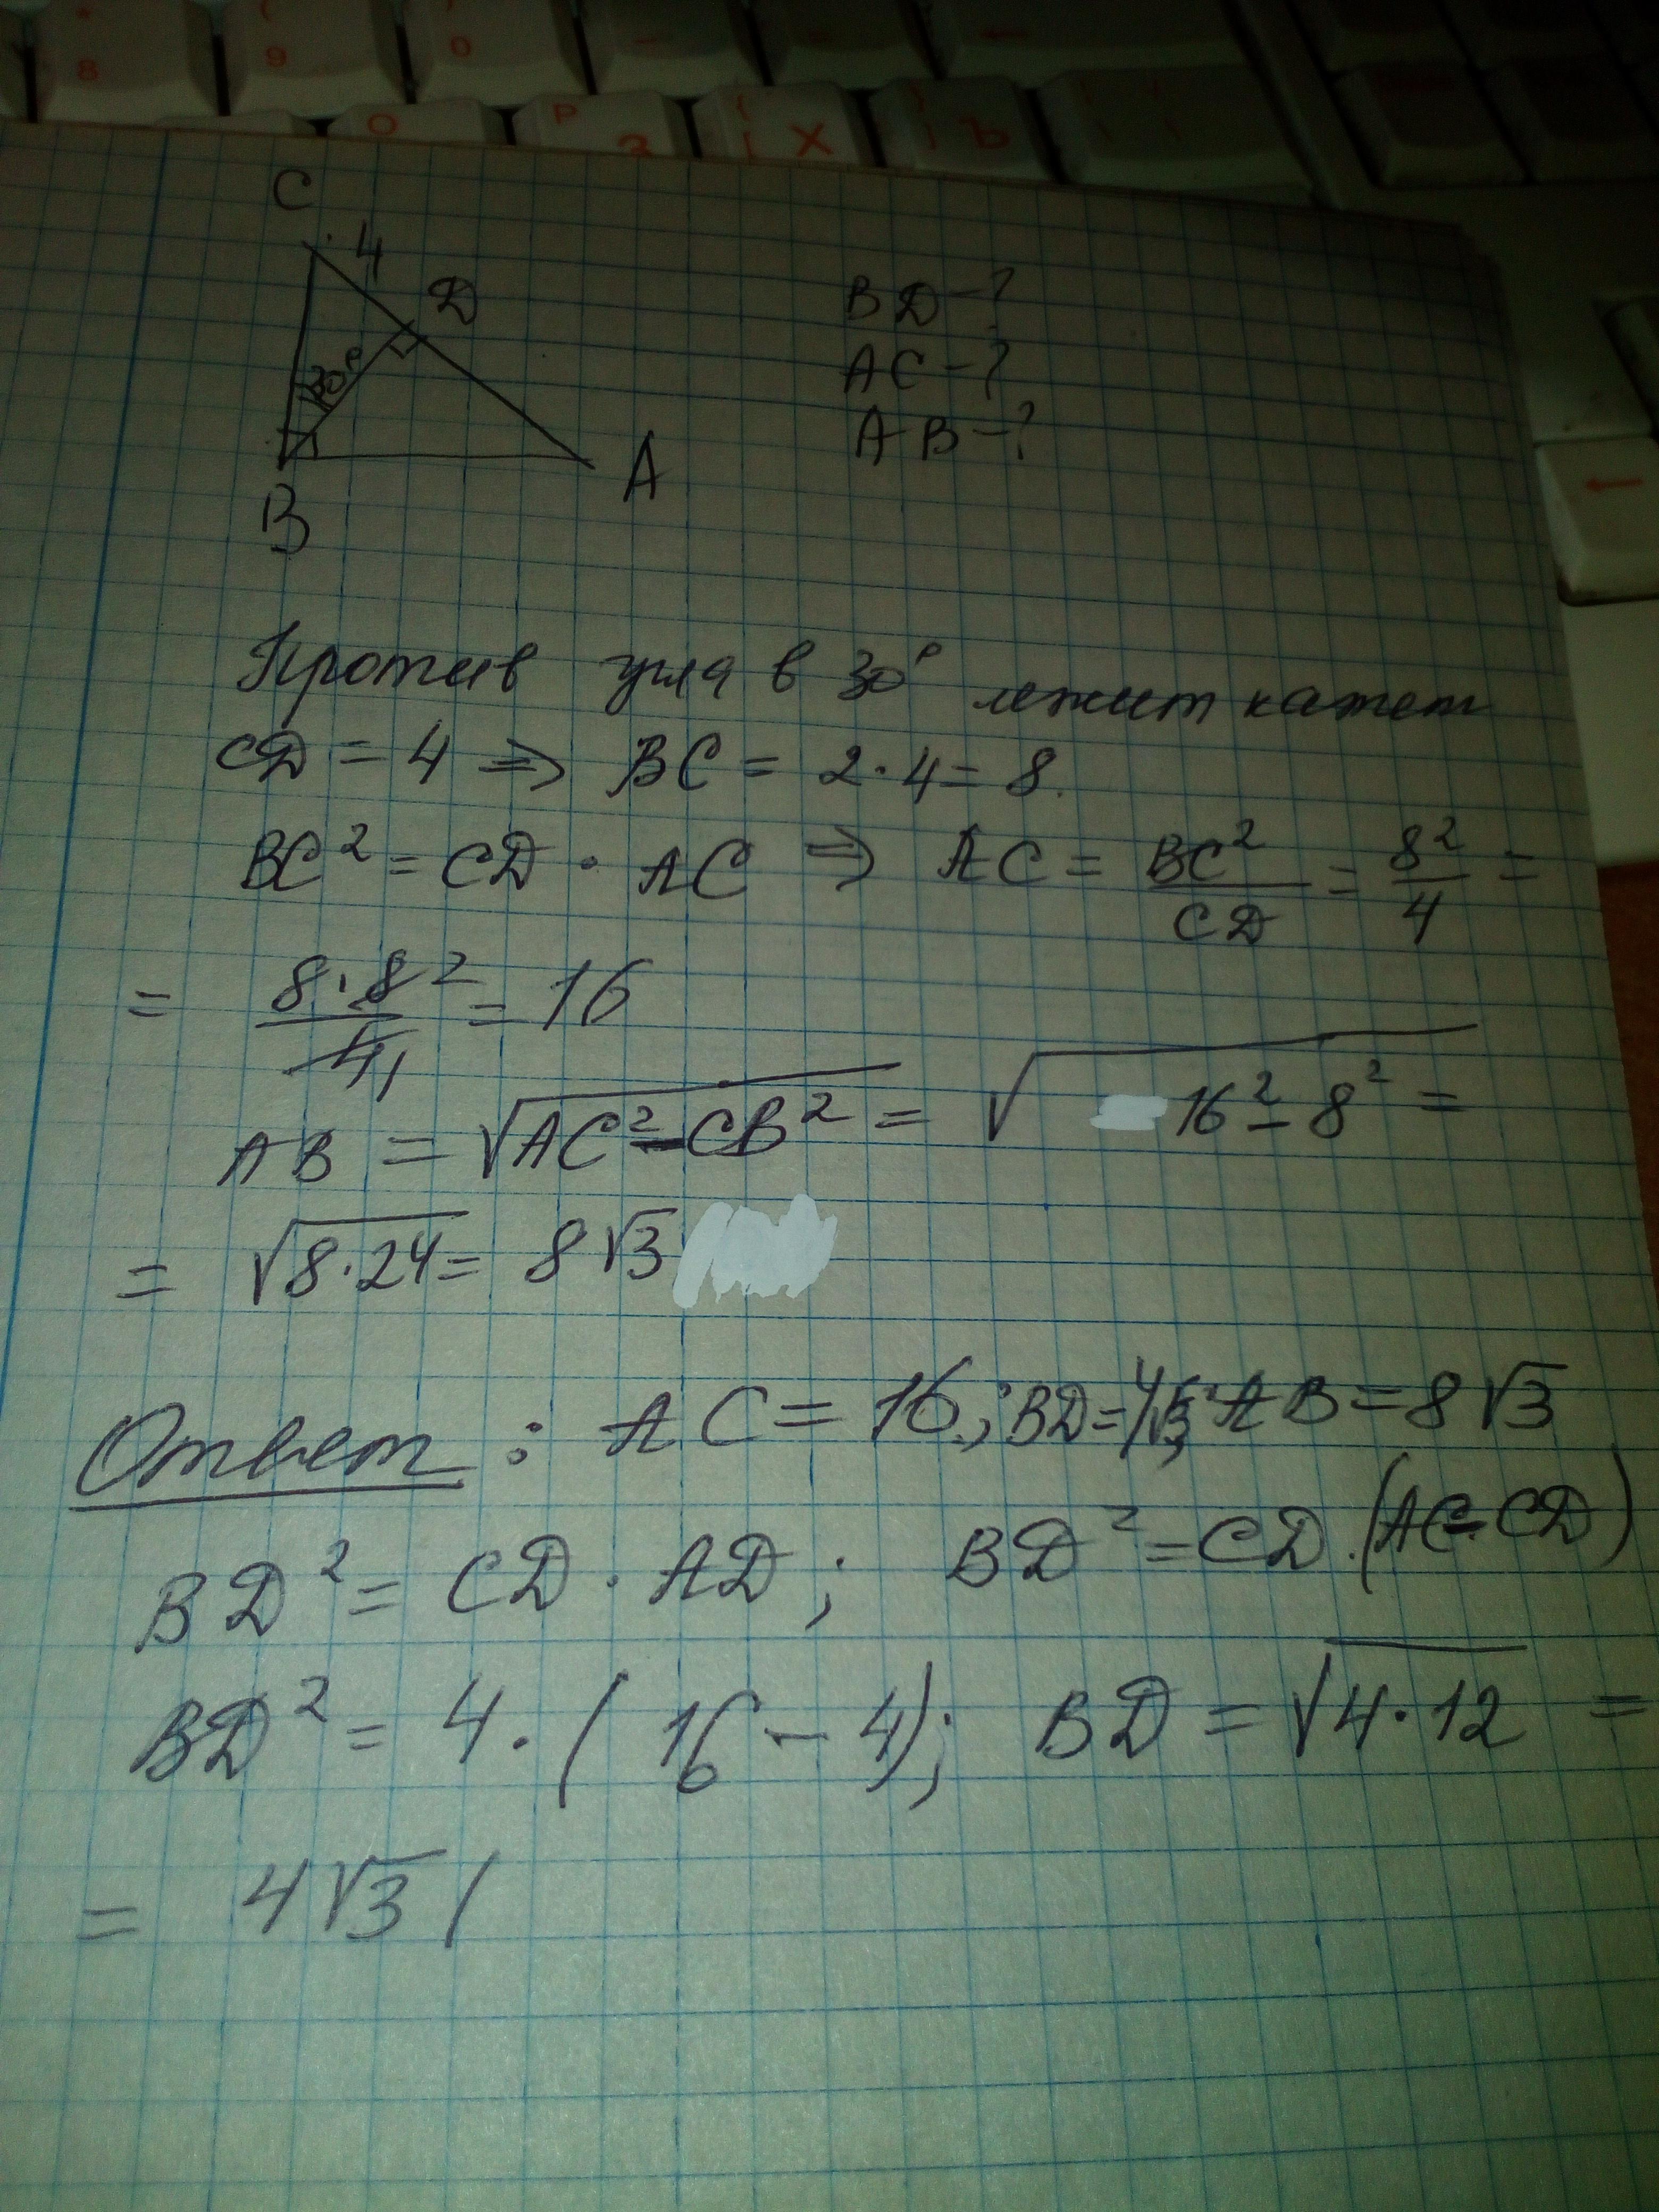 * ( )
8 9 0 - =
O P { }
З [ Х ] Ъ
C
4
D
30°
B
A
BD - ?
AC - ?
AB - ?
Против угла в 30° лежит катет
CD = 4 ⇒ BC = 2 · 4 = 8.
BC² = CD · AC ⇒ AC = BC²/CD = 8²/4 =
= 8 · 8²/4₁ = 16
AB = √(AC² - CB²) = √(16² - 8²) =
= √(8 · 24) = 8√3
Ответ: AC = 16; BD = 4√3; AB = 8√3
BD² = CD · AD; BD² = CD · (AC - CD)
BD² = 4 · (16 - 4); BD = √(4 · 12) =
= 4√3 /